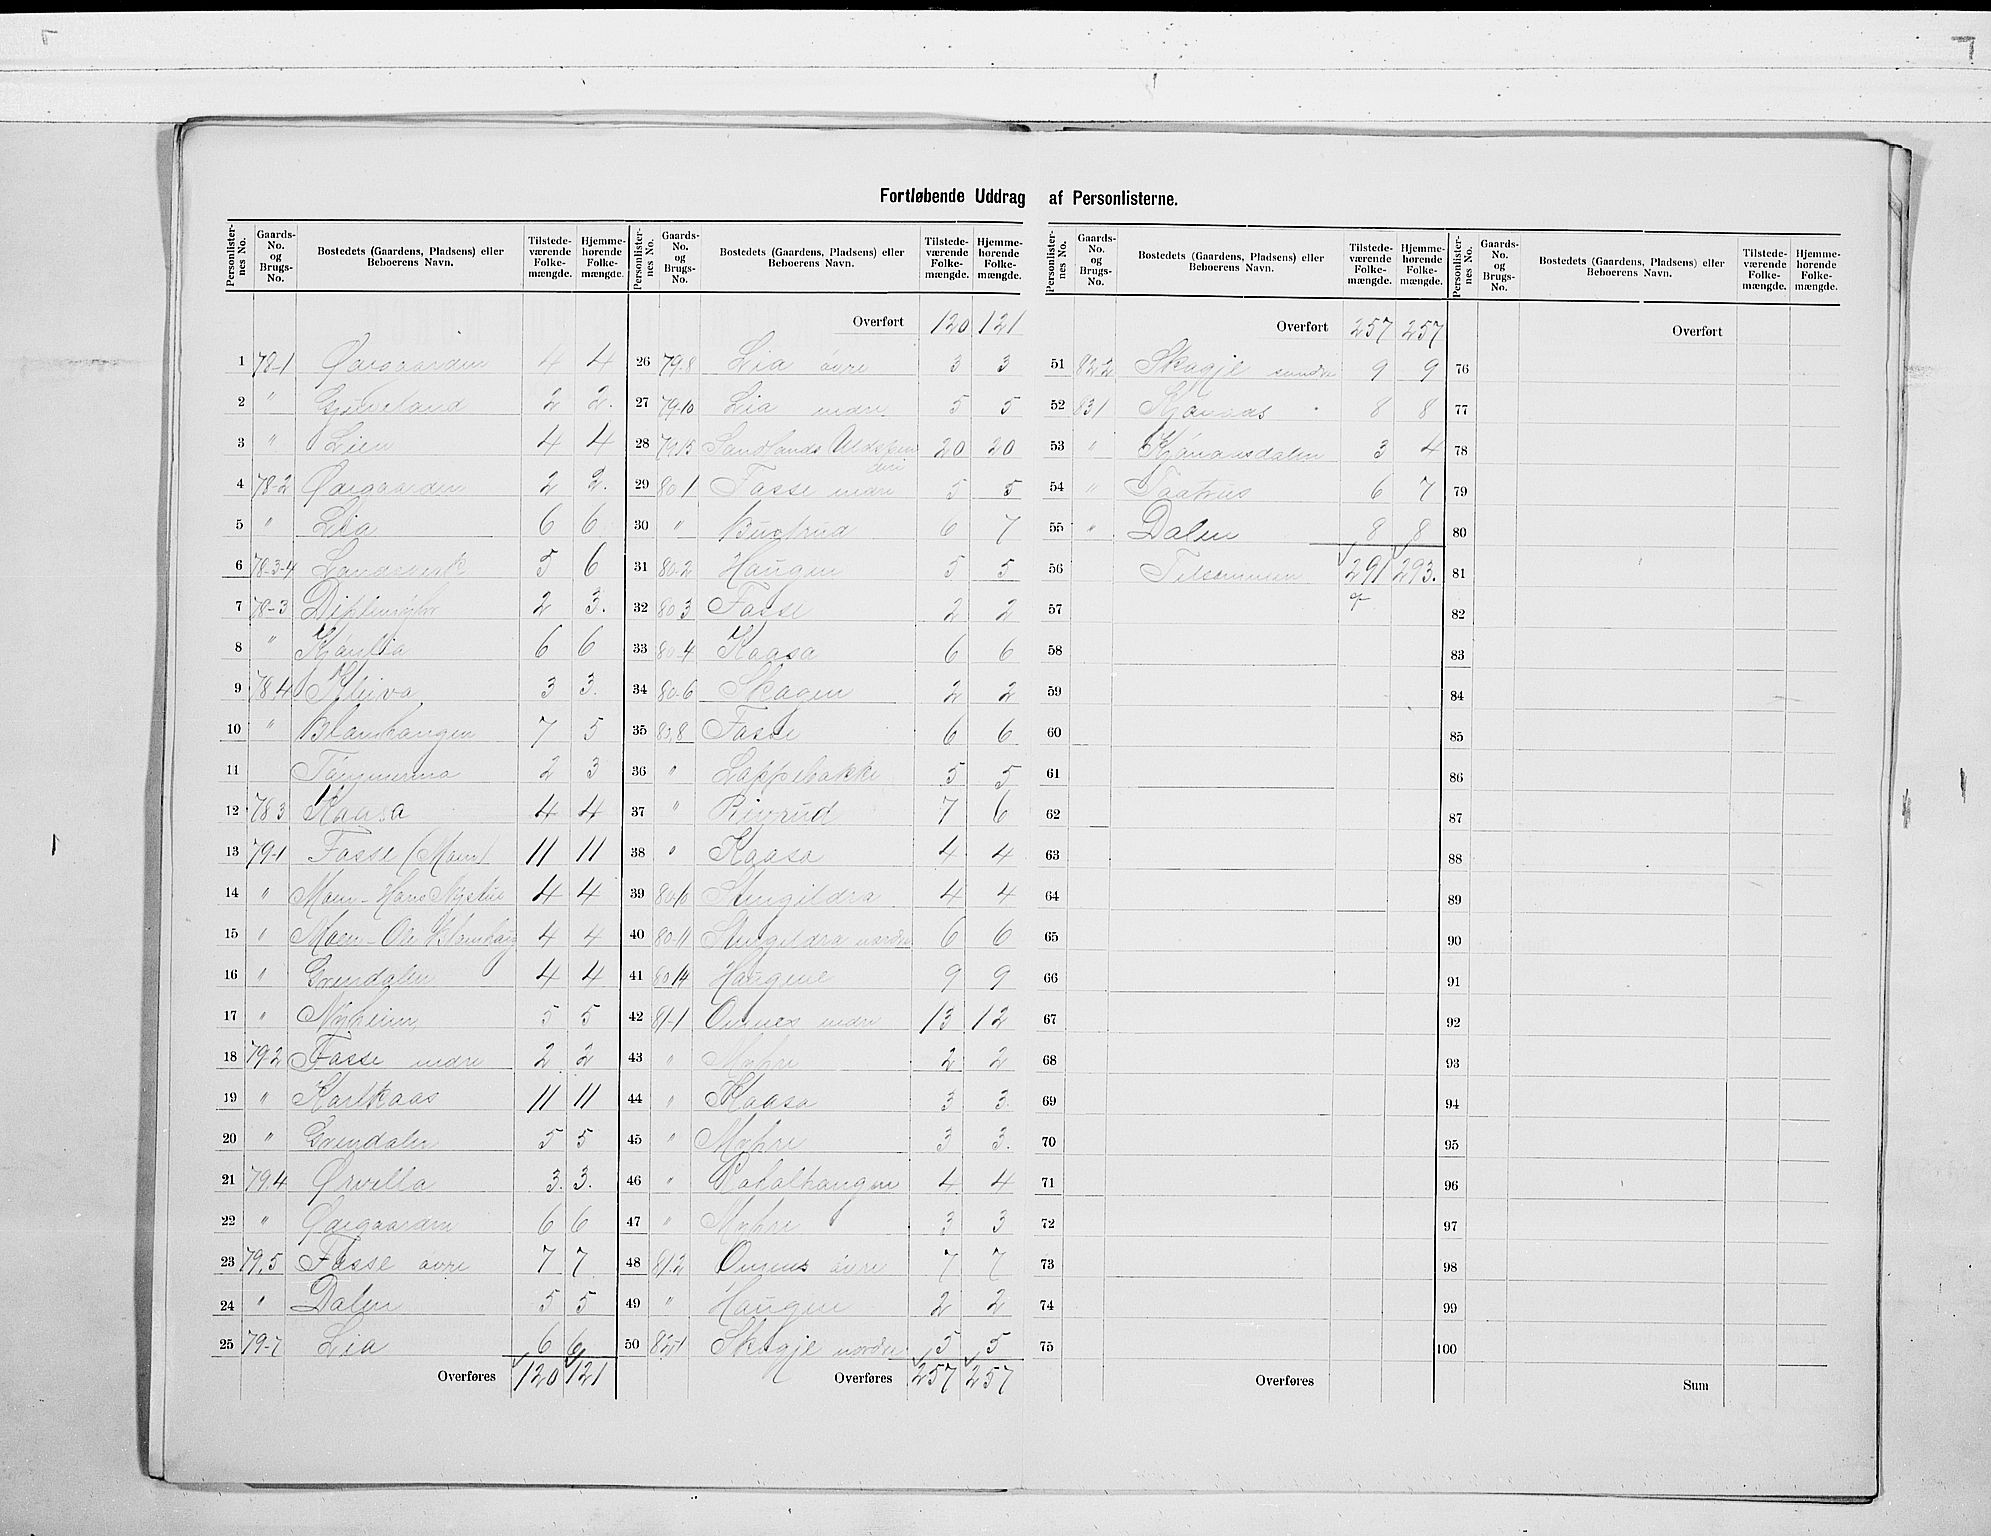 Fortløbende Uddrag af Personlisterne.
Personlisternes No. Gaards-No. og Brugs-No. Bostedets (Gaardens, Pladsens) eller Beboerens Navn. Tilstedeværende Folkemængde. Hjemmehørende Folkemængde.
1 78-1 Øregaarden 4 4
2 " Gruveland 2 2.
3 " Lien 4 4
4 78-2 Øregaarden 2 2.
5 " Lia 6 6
6 78-3-4 Landsverk 5 6
7 78-3 2 3.
8 " 6 6
9 78.4 Kleiva 3 3.
10 " Blomhaugen 7 5
11 2 3
12 78 3 Kaasa 4 4
13 79-1 Fasse (Moen) 11 11
14 " Moen - Hans Nystue 4 4
15 " Moen - Ole Blomhaug 4 4
16 " Grendalen 4 4
17 " Nyheim 5 5
18 79-2 Fasse nedre 2 2
19 " Karlkaas 11 11
20 " Grendalen 5 5
21 79.4 Ørvella 3. 3.
22 " Øregaarden 6 6
23 79.5 Fasse øvre 7 7
24 " Dalen 5 5
25 79-7 Lia 6 6
Overføres 120 121
Personlisternes No. Gaards-No. og Brugs-No. Bostedets (Gaardens, Pladsens) eller Beboerens Navn. Tilstedeværende Folkemængde. Hjemmehørende Folkemængde.
Overført 120 121
26 79.8 Lia øvre 3 3
27 79.10 Lia nedre 5 5
28 79.15 Sandlands Uldspinderi 20 20
29 80 1 Fasse nedre 5 5
30 " Buxtrud 6 7
31 80.2 Haugen 5 5
32 80 3 Fasse 2 2
33 80.4 Kaasa 6 6
34 80.6 Skogen 2 2
35 80,8 Fasse 6 6
36 " Lappebakke 5 5
37 " 7 6
38 " Kaasa 4 4
39 80.10 Stengildra 4 4
40 80-11 Stengildra nordre 6 6
41 80 14 Haugene 9 9
42 81-1 Omnes nedre 13 12
43 " Myhre 2 2
44 " Kaasa 3 3.
45 " Myhre 3 3.
46 " 4 4
47 " Myhre 3 3
48 81.2 Omnes øvre 7 7
49 " Haugen 2 2
50 82.1 Skogje nordre 5 5
Overføres 257 257
Personlisternes No. Gaards-No. og Brugs-No. Bostedets (Gaardens, Pladsens) eller Beboerens Navn. Tilstedeværende Folkemængde. Hjemmehørende Folkemængde.
Overført 257 257
51 82.2 Skogje søndre 9 9
52 83 1 Kjønaas 8 8
53 " Kjønaasdalen 3 4
54 " Taatrus 6 7
55 " Dalen 8 8
56 Tilsammen 291 293.
57
58
59
60
61
62
63
64
65
66
67
68
69
70
71
72
73
74
75
Overføres
Personlisternes No. Gaards-No. og Brugs-No. Bostedets (Gaardens, Pladsens) eller Beboerens Navn. Tilstedeværende Folkemængde. Hjemmehørende Folkemængde.
Overført
76
77
78
79
80
81
82
83
84
85
86
87
88
89
90
91
92
93
94
95
96
97
98
99
100
Sum